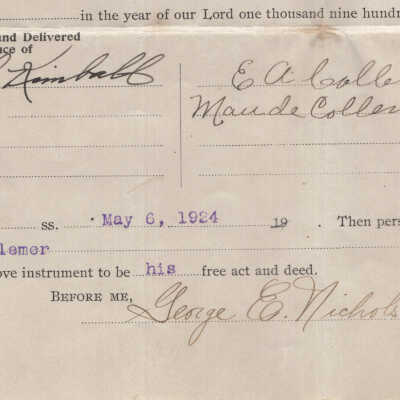 in the year of our Lord one thousand nine hundr
and Delivered
nce of
Kimball
E A Colle
Maude Collem
ss. May 6, 1924 19 . Then pers
lemer
ove instrument to be his free act and deed.
BEFORE ME,
George E. Nichols